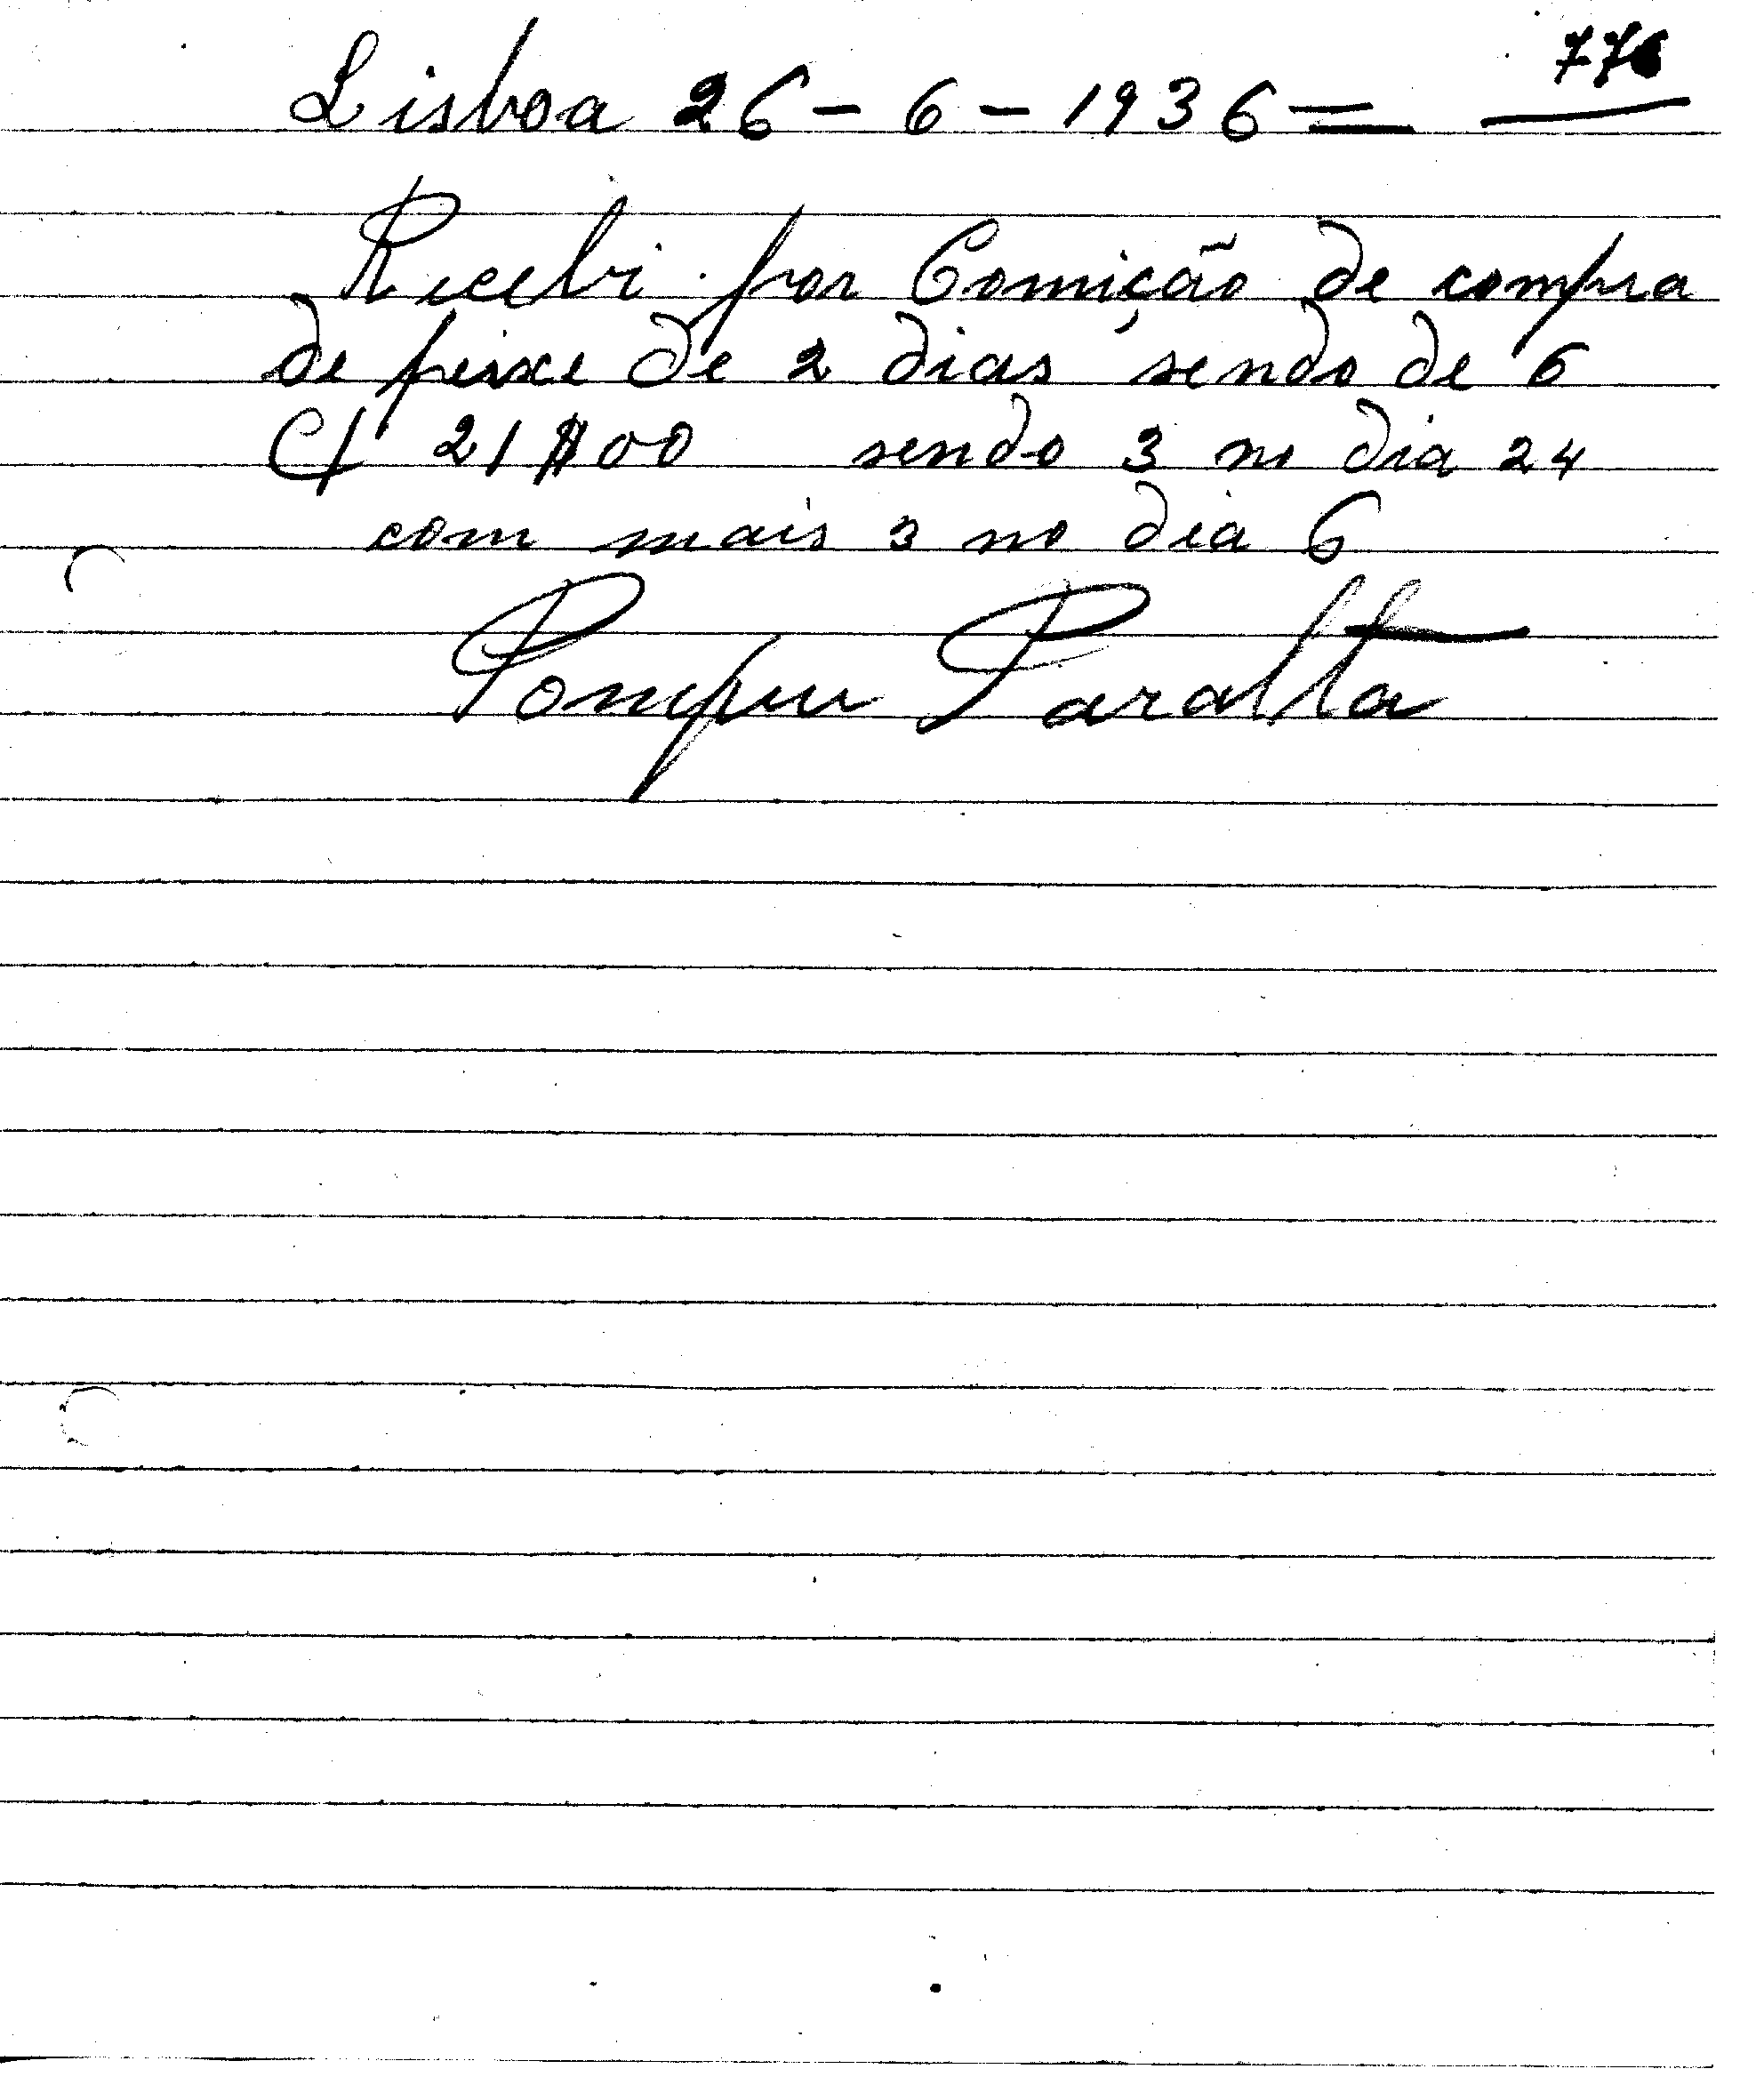 776
Lisboa 26 - 6 - 1936 =
Recebi por Comição de compra
de peixe de 2 dias sendo de 6
C/ 21$00 sendo 3 no dia 24
com mais 3 no dia 6
Pompeu Paralta